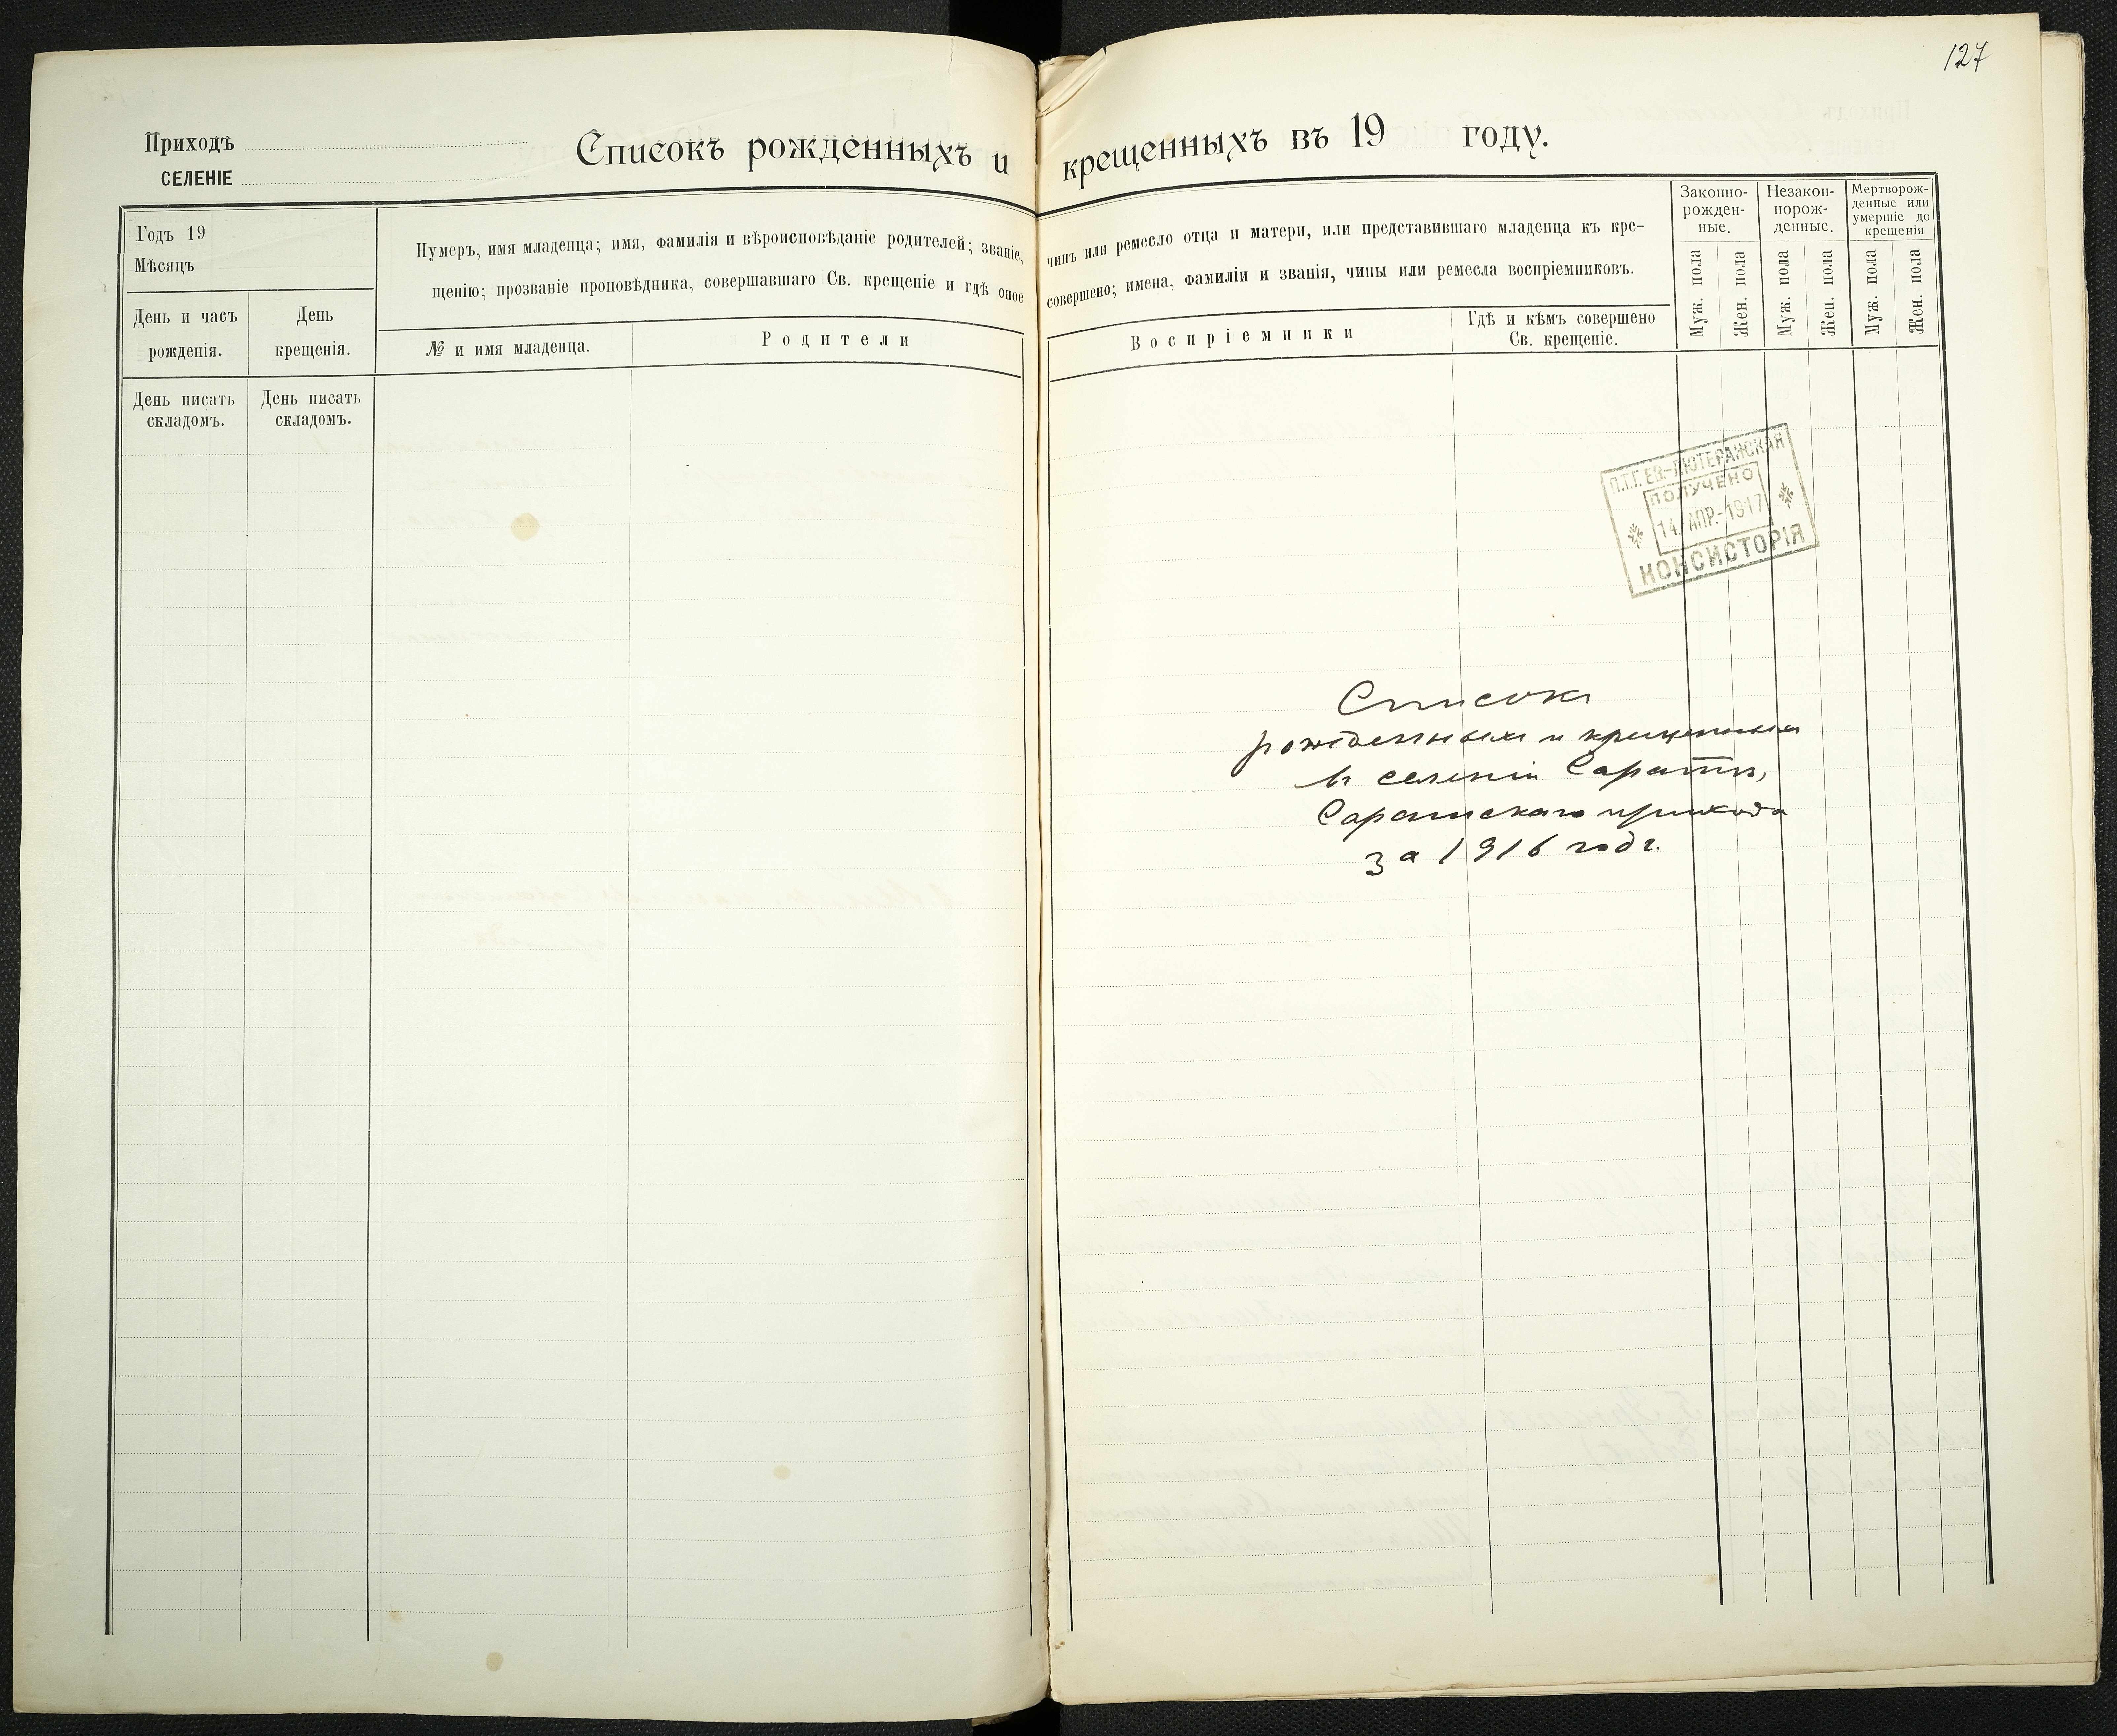 127
Приходъ
СЕЛЕНІЕ
Списокъ рожденныхъ и крещенныхъ въ 19 году.
Годъ 19
Мѣсяцъ
Нумеръ, имя младенца; имя, фамилія и вѣроисповѣданіе родителей; званіе, чинъ или ремесло отца и матери, или представившаго младенца къ кре-
щенію; прозваніе проповѣдника, совершавшаго Св. крещеніе и гдѣ оное совершено; имена, фамиліи и званія, чины или ремесла воспріемниковъ.
День и часъ
рожденія.
День
крещенія.
№ и имя младенца.
Родители
Воспріемники
Гдѣ и кѣмъ совершено
Св. крещеніе.
Законно-
рожден-
ные.
Незакон-
норож-
денные.
Мертворож-
денные или
умершіе до
крещенія
Муж. пола
Жен. пола
Муж. пола
Жен. пола
Муж. пола
Жен. пола
День писать
складомъ.
День писать
складомъ.
П.Т.Г. ЕВ.-ЛЮТЕРАНСКАЯ
ПОЛУЧЕНО
14. АПР.-1917
КОНСИСТОРІЯ
Списокъ
рожденныхъ и крещенныхъ
въ селеніи Сарата,
Саратскаго прихода
за 1916 годъ.